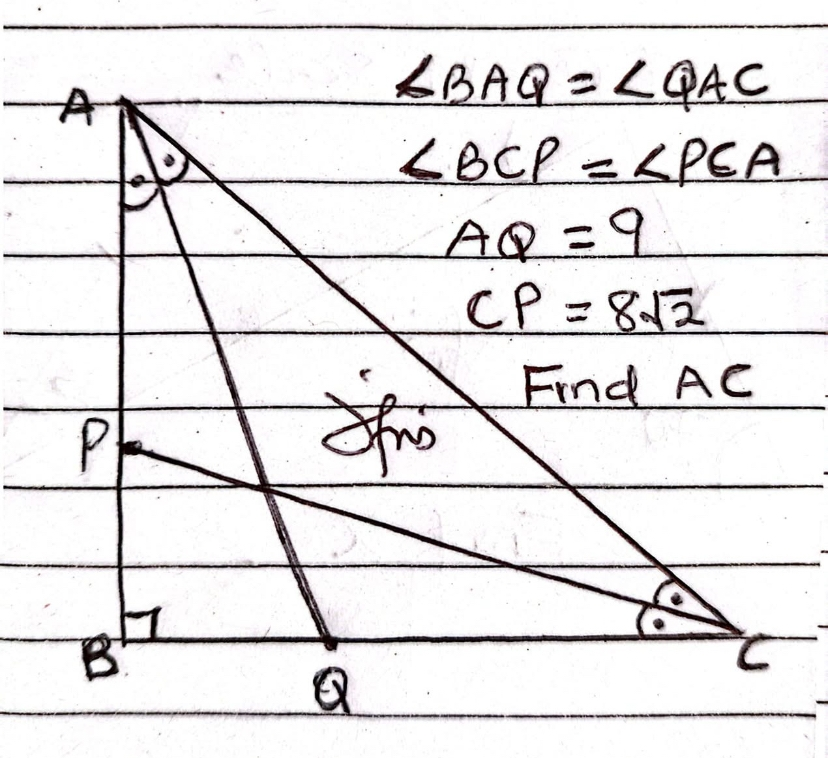 ∠BAQ = ∠QAC
A
∠BCP = ∠PCA
AQ = 9
CP = 8√2
Find AC
P
B
Q
C